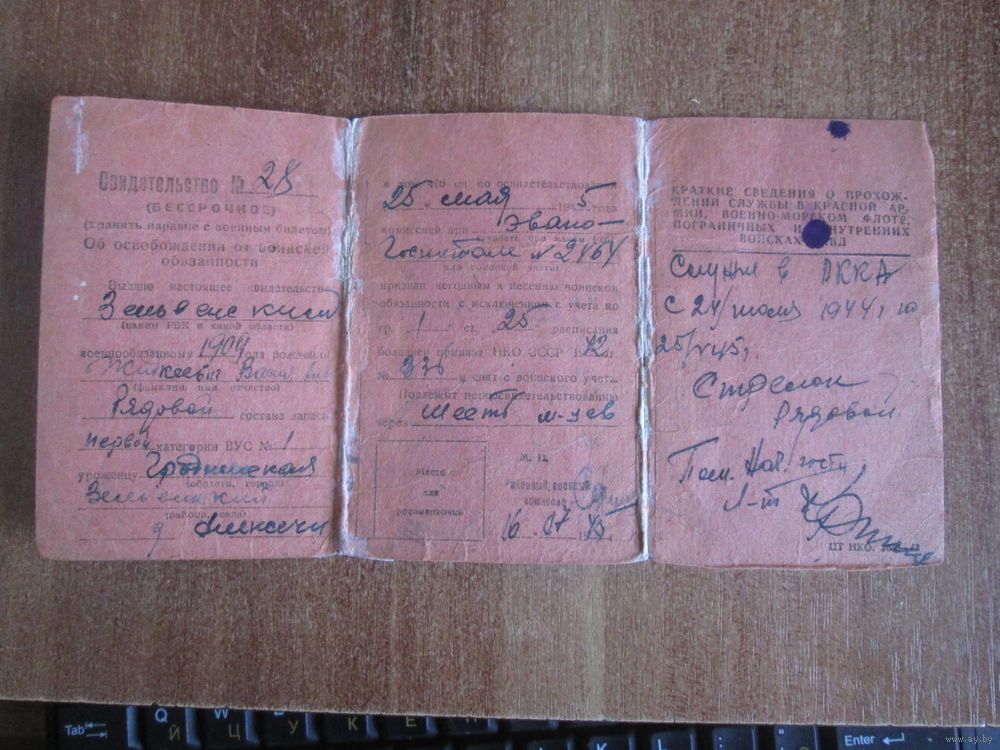 Свидетельство № 28
(БЕССРОЧНОЕ)
(хранить наравне с военным билетом)
Об освобождении от воинской
обязанности
Выдано настоящее свидетельство
Зельвенский
(каким РВК и какой области)
военнообязанному 1909 года рождения
(фамилия, имя, отчество)
Рядовой состава запаса
первой категории ВУС № 1
уроженцу Гродненская
(область, город)
Зельвенский
(района, села)
д
в том, что он по освидетельствовании
25 мая 1945 года
комиссией при Эвако-
Госпитале N 2464
или воинской части)
признан негодным к несению воинской
обязанности с исключением с учета по
гр. 1 ст. 25 расписания
болезней приказа НКО СССР 1942 г.
№ 336 и снят с воинского учета.
Подлежит переосвидетельствованию
через шесть м-цев
Место
для
М. П.
Районный военный
комиссар
16. 07 194
КРАТКИЕ СВЕДЕНИЯ О ПРОХОЖ-
ДЕНИИ СЛУЖБЫ В КРАСНОЙ АР-
МИИ, ВОЕННО-МОРСКОМ ФЛОТЕ,
ПОГРАНИЧНЫХ И ВНУТРЕННИХ
ВОЙСКАХ НКВД
Служил в РККА
с 24/июля 1944 г по
25/V45г.
Стрелок
Рядовой
Пом. Нач. 1 части
Л-т
ЦТ НКО.
Tab
Q W E
Й Ц У К Е
Enter
www.ay.by